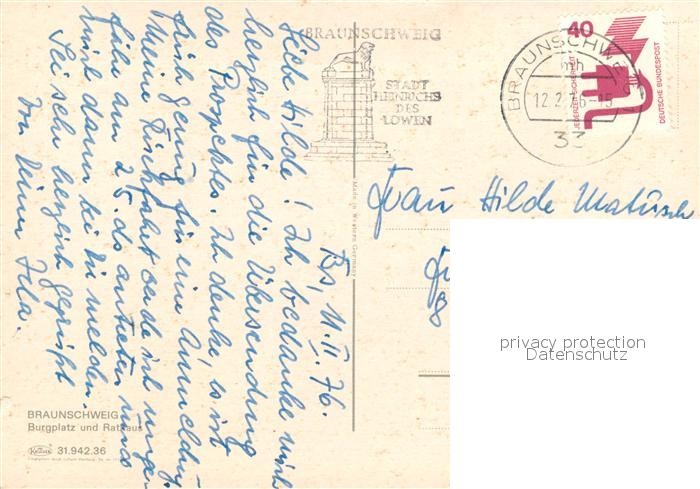 Bs, 11. II. 76.
Liebe Hilde! Ich bedanke mich
herzlich für die Übersendung
des Prospektes. Ich denke es ist
früh genug für eine Anmeldung.
Meine Rückfahrt werde ich ungefähr
am 25. ds antreten und
mich dann bei Dir melden.
Sei sehr herzlich gegrüßt
von Deiner
BRAUNSCHWEIG
STADT
HEINRICHS
DES
LÖWEN
BRAUNSCHWEIG
mh
12.2.76-15
33
40
JEDERZEIT SICHERHEIT
DEUTSCHE BUNDESPOST
Frau Hilde
Made in Western Germany
privacy protection
Datenschutz
BRAUNSCHWEIG
Burgplatz und Rathaus
31.942.36